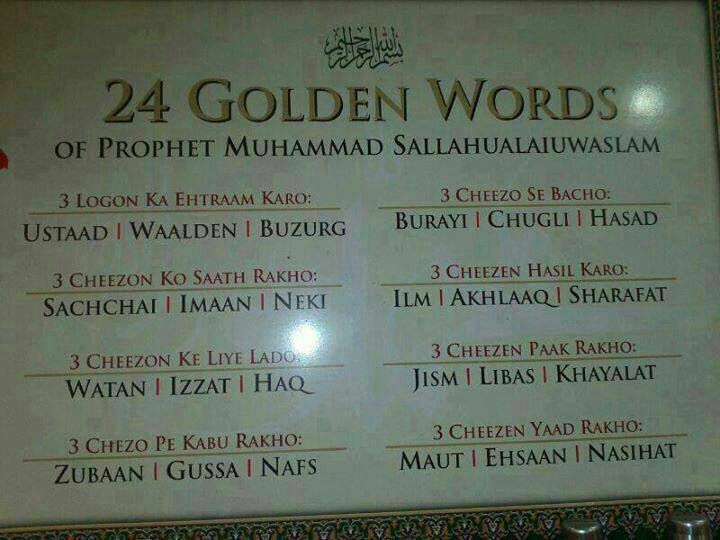 بسم الله الرحمن الرحيم
24 GOLDEN WORDS
OF PROPHET MUHAMMAD SALLAHUALAIUWASLAM
3 LOGON KA EHTRAAM KARO:
USTAAD | WAALDEN | BUZURG
3 CHEEZON KO SAATH RAKHO:
SACHCHAI | IMAAN | NEKI
3 CHEEZON KE LIYE LADO:
WATAN | IZZAT | HAQ
3 CHEZO PE KABU RAKHO:
ZUBAAN | GUSSA | NAFS
3 CHEEZO SE BACHO:
BURAYI | CHUGLI | HASAD
3 CHEEZEN HASIL KARO:
ILM | AKHLAAQ | SHARAFAT
3 CHEEZEN PAAK RAKHO:
JISM | LIBAS | KHAYALAT
3 CHEEZEN YAAD RAKHO:
MAUT | EHSAAN | NASIHAT